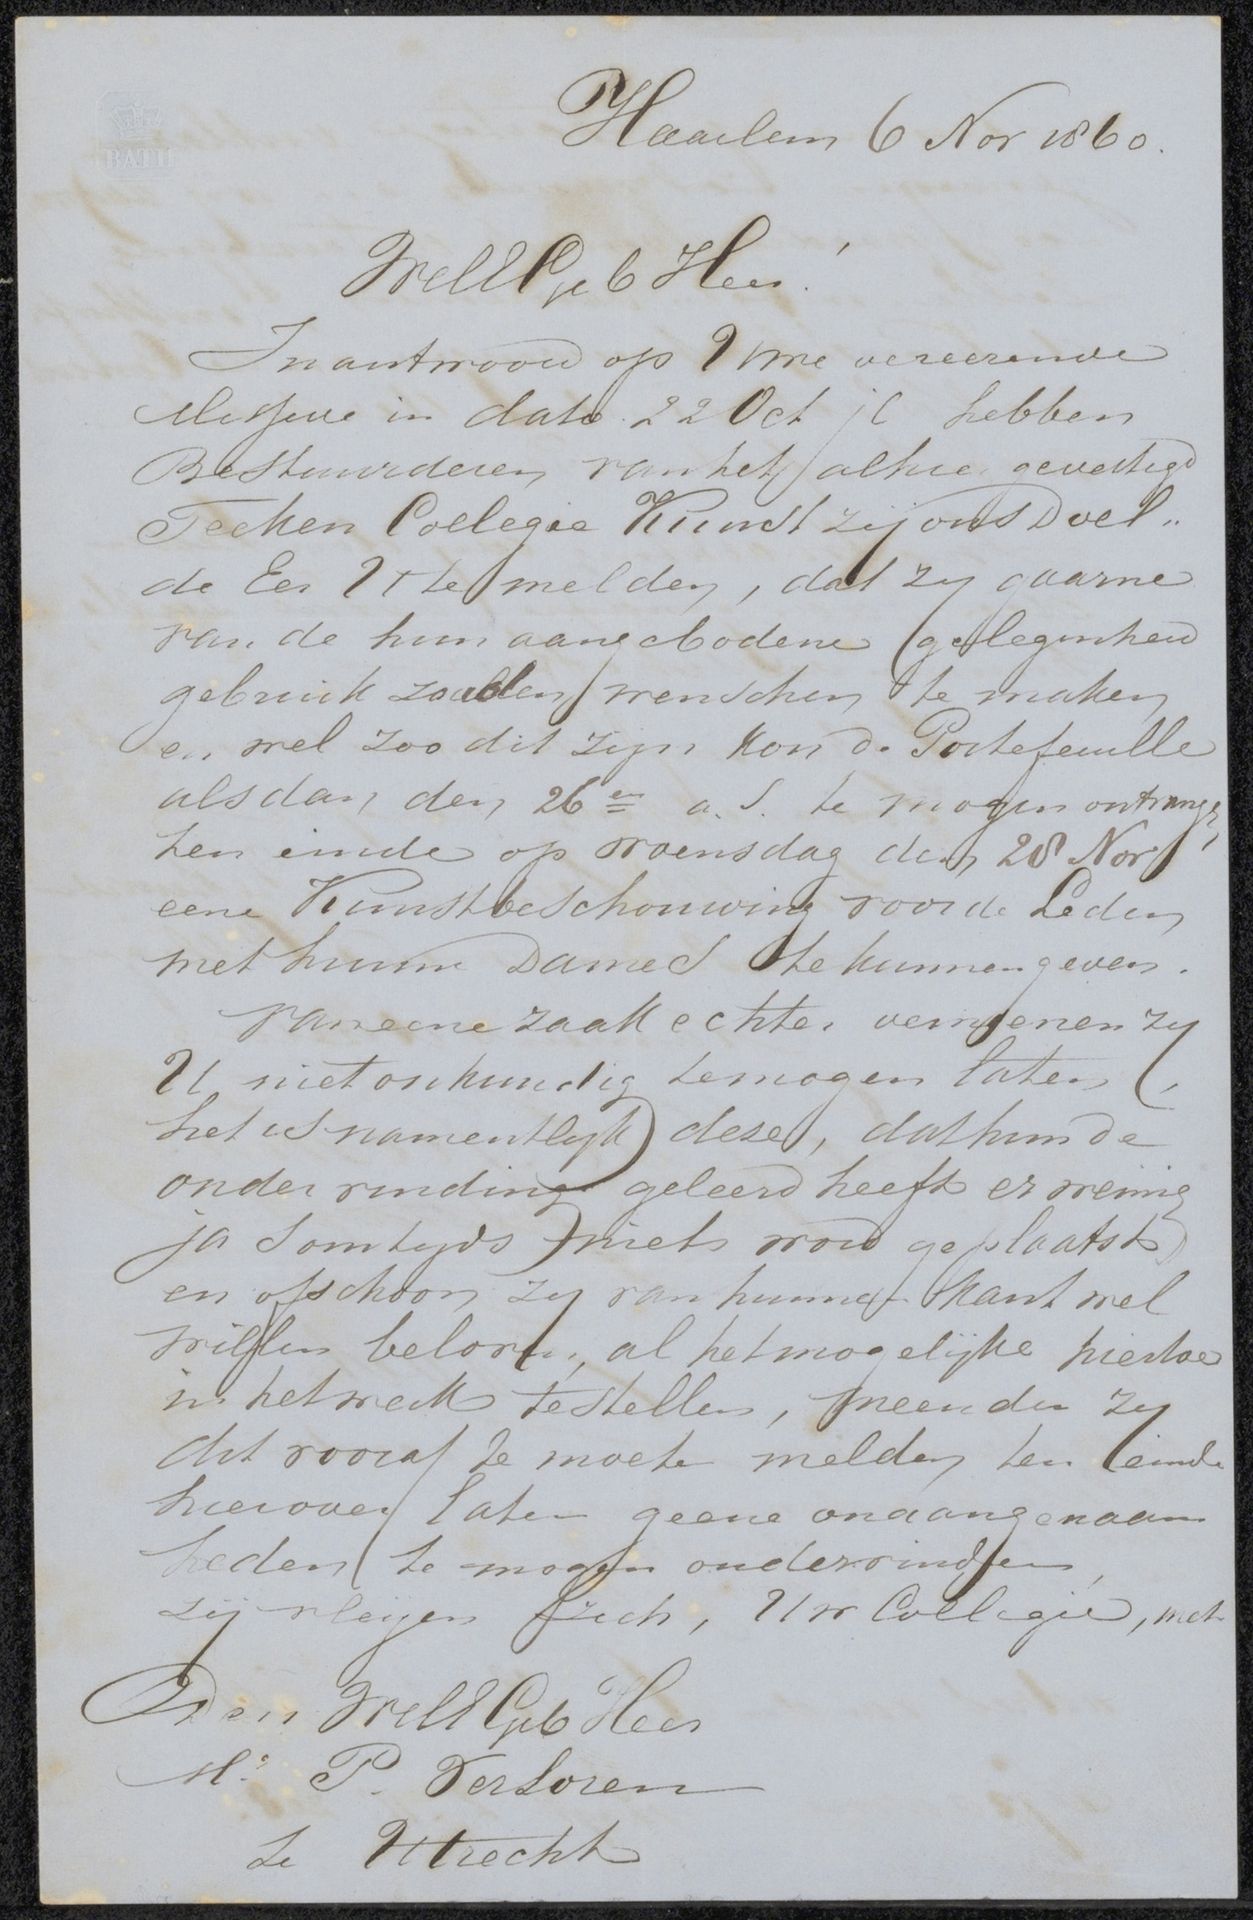 BATH
Haarlem 6 Nov 1860.
WelEGeb Heer!
In antwoord op Uwe vereerende
Missive in dato 22 Oct jl hebben
Bestuurderen van het alhier gevestigd
Teeken Collegie Kunst zij ons Doel..
de Eer U te melden, dat zy gaarne
van de hun aangebodene gelegenheid
gebruik zouden wenschen te maken
en wel zoo dit zijn kon de Portefeuille
alsdan den 26en a.s. te mogen ontvangen
ten einde op woensdag den 28 Nov
eene Kunstbeschouwing voor de Leden
met hunne Dames te kunnen geven.
Van eene zaak echter vermeenen zy
U niet onkundig te mogen laten,
het is namentlyk deze, dat hun de
ondervinding geleerd heeft er weinig
ja somtyds niets word geplaatst
en ofschoon zy van hunne kant wel
willen beloven, al het mogelijke hiertoe
in het werk te stellen, meenden zy
dit vooraf te moeten melden ten einde
hierover later geene onaangenaam
heden te mogen ondervinden,
zij vleijen zich, Uw Collegie, met
Den WelEGeb Heer
Mr. P. VerLoren
te Utrecht